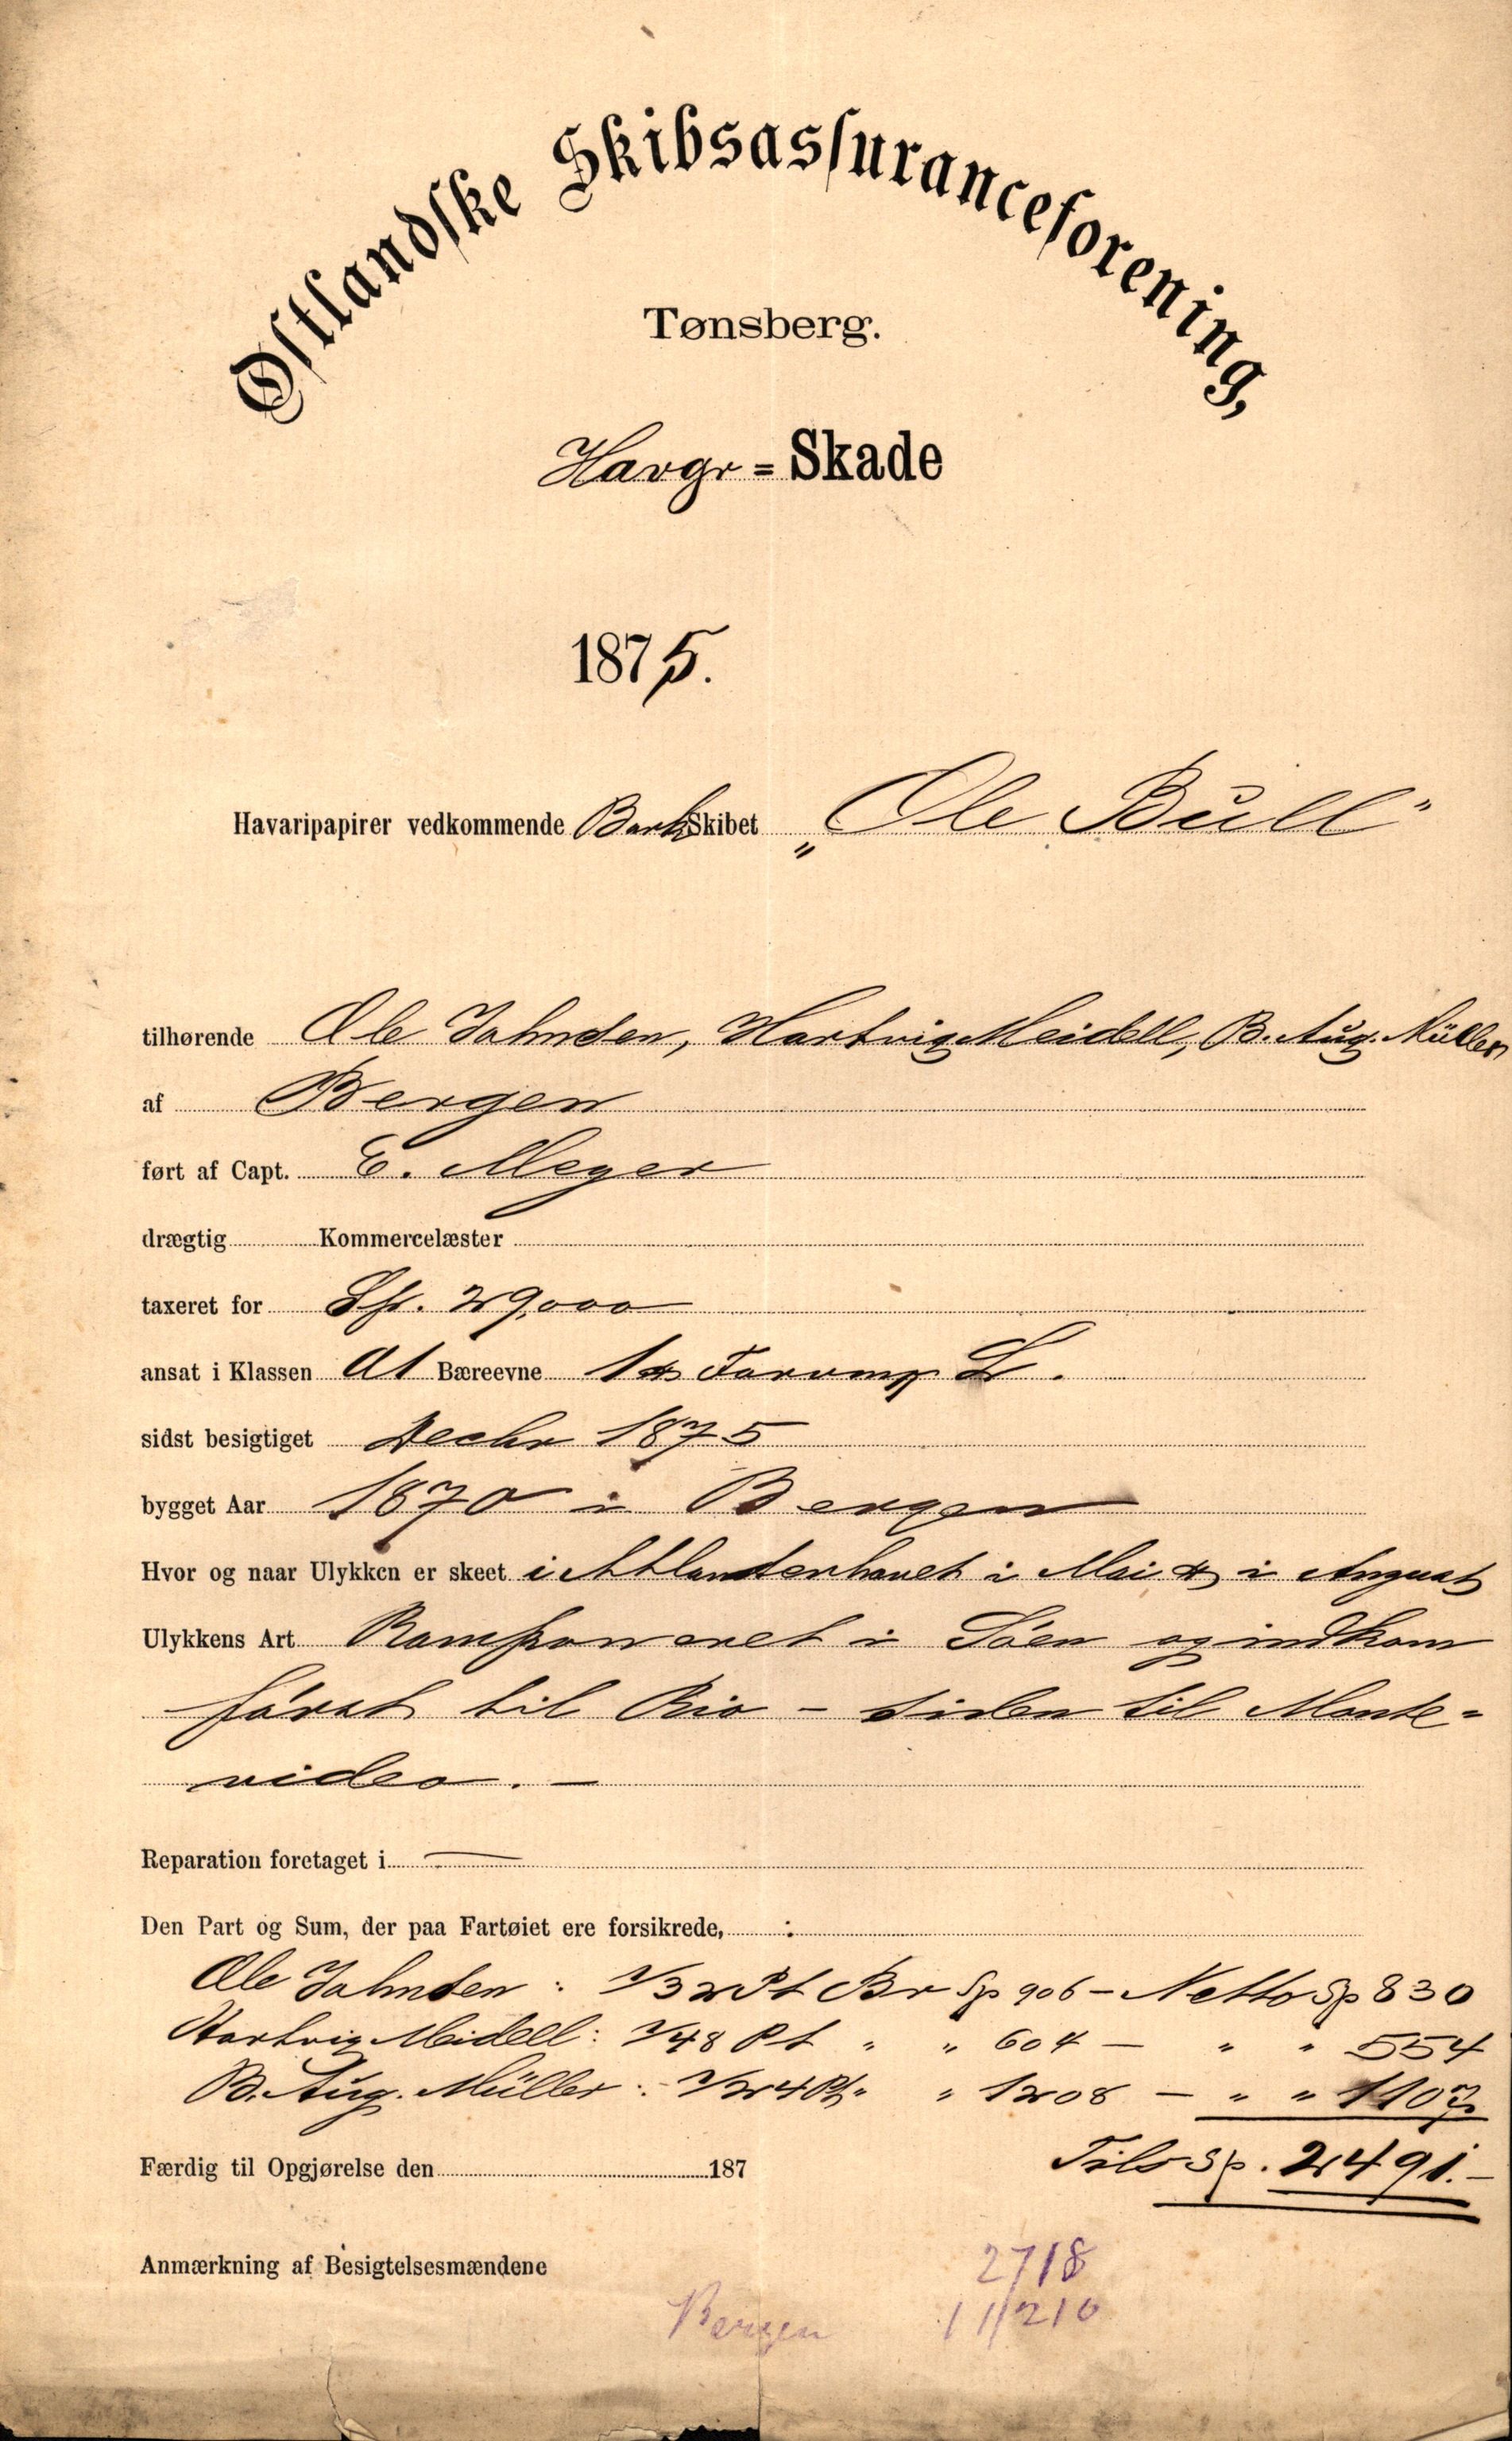 Østlandske Skibsassuranceforening,
Tønsberg.
Havgr = Skade
1875.
Havaripapirer vedkommende Bark Skibet „Ole Bull"
tilhørende Ole Jahnsen, Hartvig Meidell, B. Aug. Müller
af Bergen
ført af Capt. E. Meyer
drægtig Kommercelæster
taxeret for 29,000
ansat i Klassen A1 Bæreevne
sidst besigtiget Decbr 1875
bygget Aar 1870 i Bergen
Hvor og naar Ulykken er skeet i Atlanterhavet i Mai & i August
Ulykkens Art Ramponeret i Söen og indkom
först til Rio – siden til Monte=
video. –
Reparation foretaget i —
Den Part og Sum, der paa Fartøiet ere forsikrede, :
Ole Jahnsen : 1/32 Pt Br Sp 906 – Netto Sp 830
Hartvig Meidell : 1/48 Pt " " 604 – " " 554
B. Aug. Müller : 1/24 Pt " " 1208 – " " 1107
Færdig til Opgjørelse den 187
Tils Sp. 2491.–
Anmærkning af Besigtelsesmændene
2718
Bergen 11/210